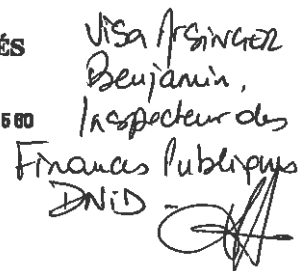 ÉS
Visa Arsinger
Benjamin,
580
Inspecteur des
Finances Publiques
DNID